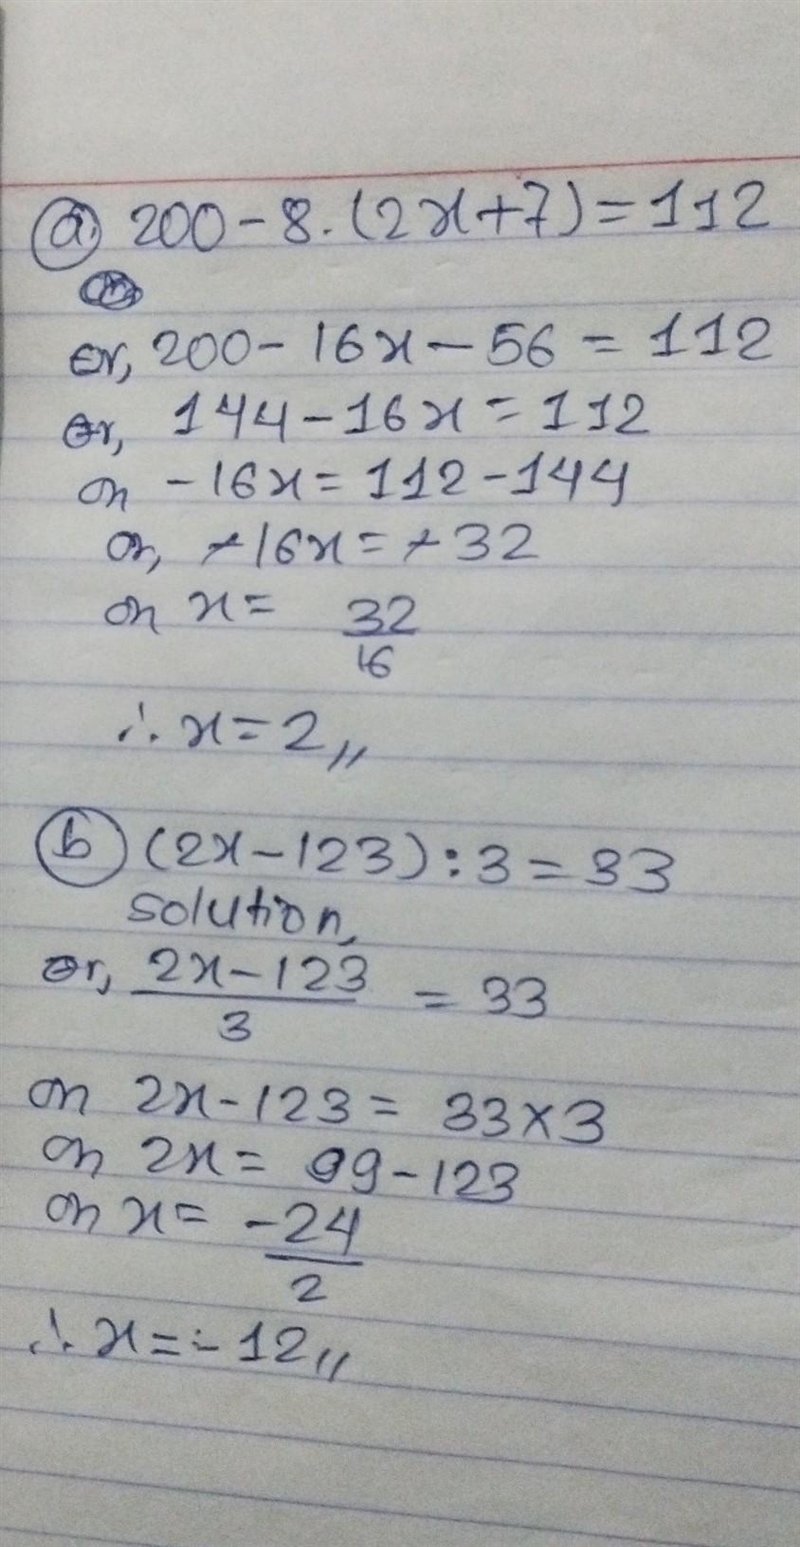 a) 200 - 8. (2x+7) = 112
or, 200 - 16x - 56 = 112
or, 144 - 16x = 112
or -16x = 112 - 144
or, -16x = -32
or x = 32/16
∴ x = 2,,
b) (2x - 123) : 3 = 33
solution,
or, 2x - 123/3 = 33
or 2x - 123 = 33 × 3
or 2x = 99 - 123
or x = -24/2
∴ x = - 12,,